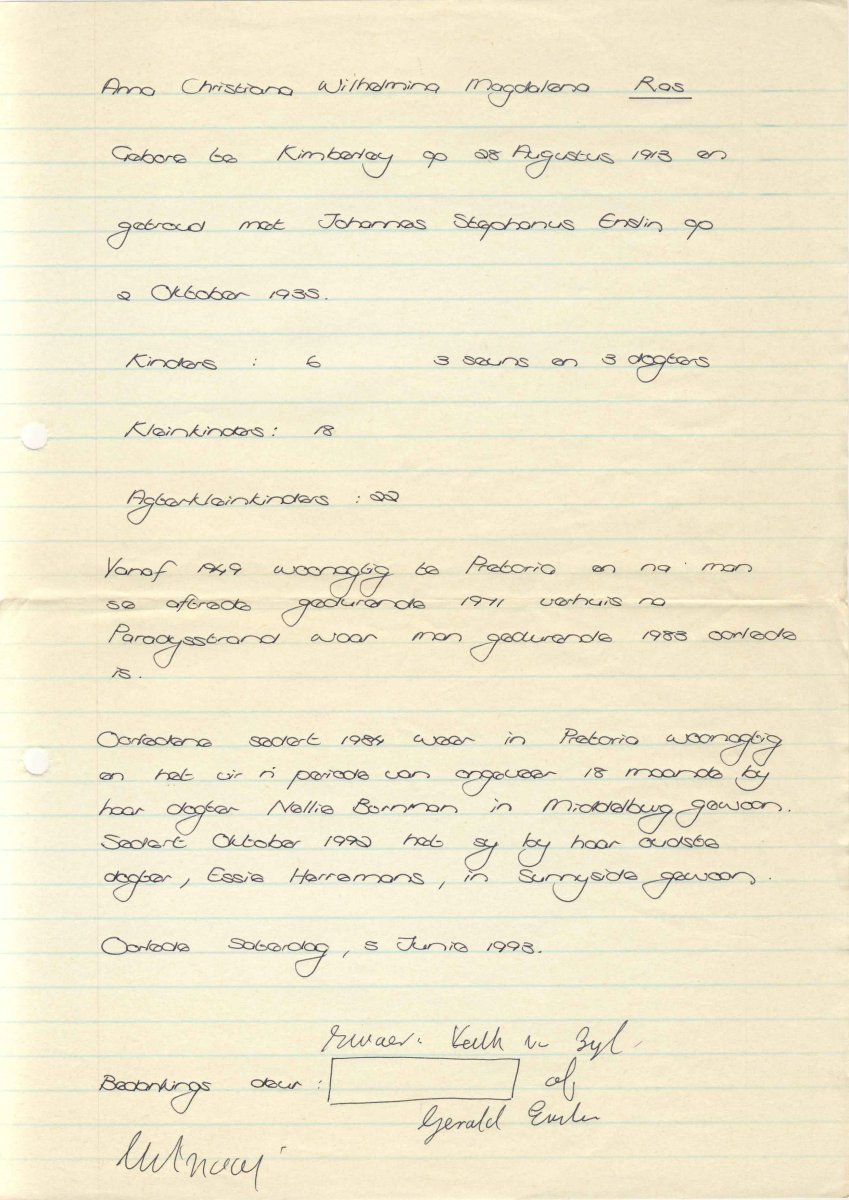 Anna Christiana Wilhelmina Magdalena Ras
Gebore te Kimberley op 28 Augustus 1913 en
getroud met Johannes Stephanus Enslin op
2 Oktober 1935.
Kinders : 6 3 seuns en 3 dogters
Kleinkinders : 18
Agterkleinkinders : 22
Vanaf 1949 woonagtig te Pretoria en na man
se aftrede gedurende 1971 verhuis na
Paradysstrand waar man gedurende 1983 oorlede
is.
Oorledene sedert 1984 weer in Pretoria woonagtig
en het vir 'n periode van ongeveer 18 maande by
haar dogter Nellie Bornman in Middelburg gewoon.
Sedert Oktober 1992 het sy by haar oudste
dogter, Essie Herremans, in Sunnyside gewoon.
Oorlede Saterdag, 5 Junie 1993.
Zyl
Bedankings deur : of
Gerald Enslin